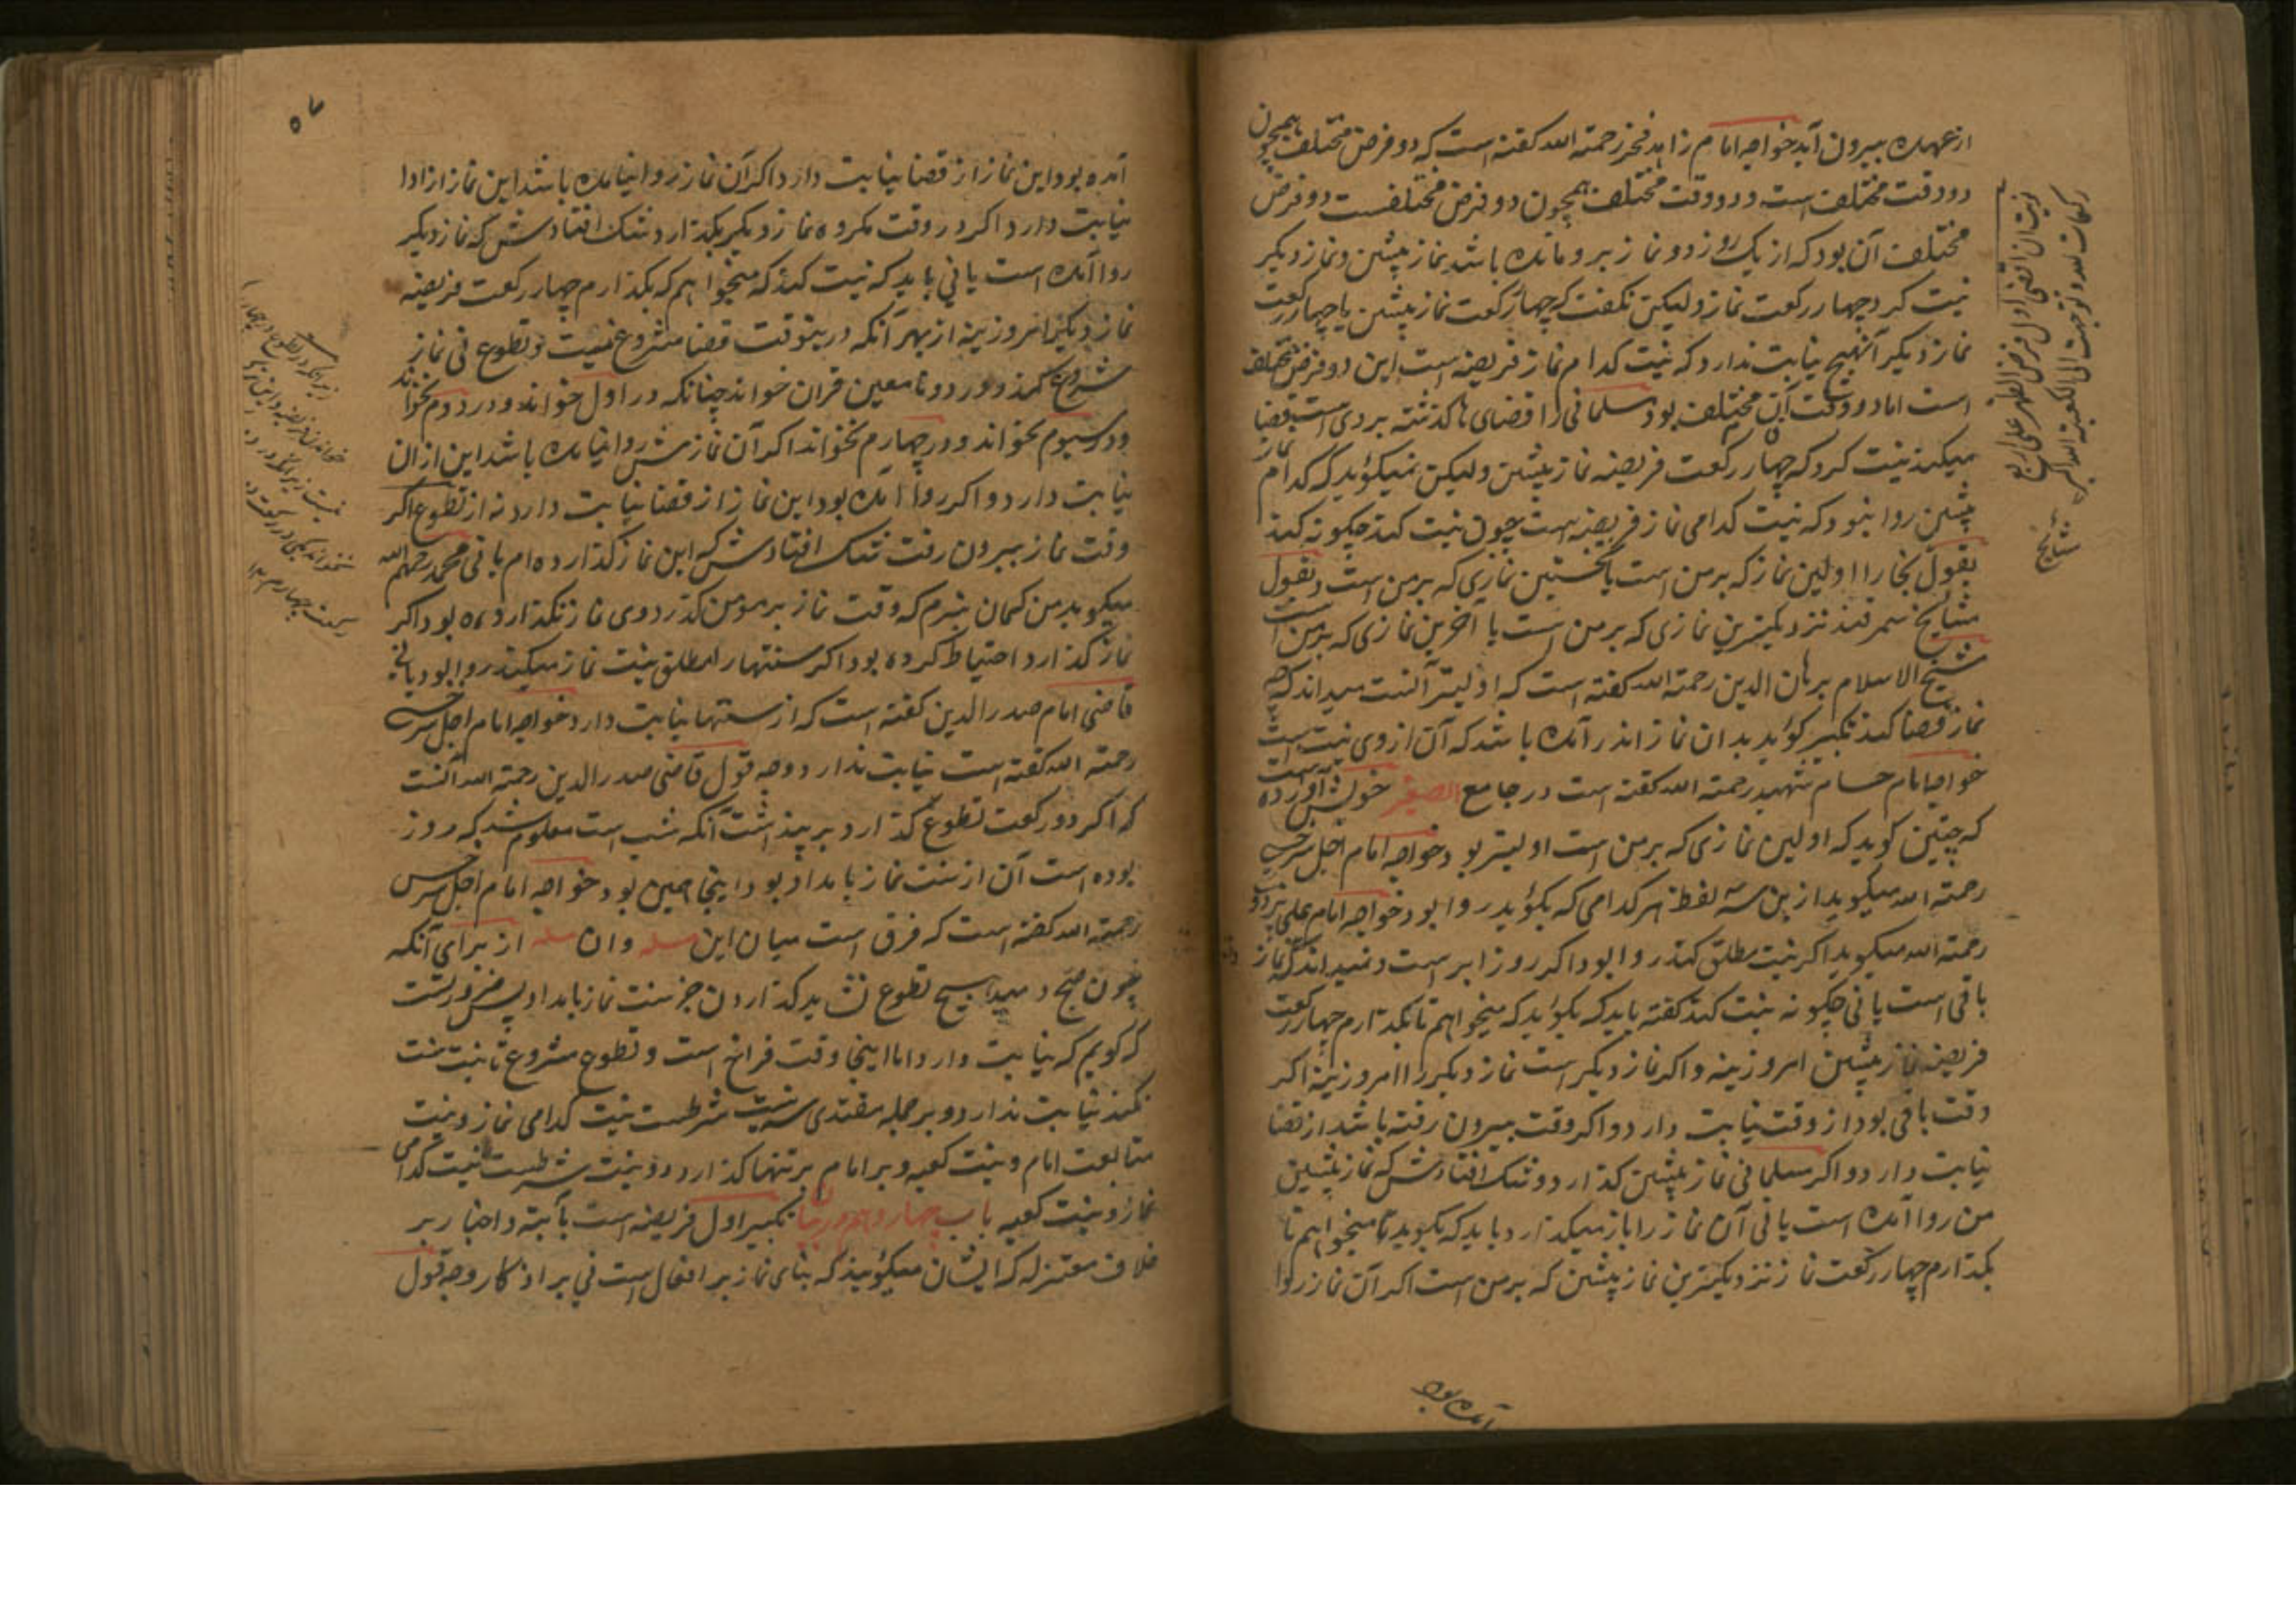 از عهده بیرون آید خواجه امام زاهد فخر رحمة الله کفته است که دو فرض مختلف همچون
دو وقت مختلف است و دو وقت مختلف همچون دو فرض مختلفست دو فرض
مختلف آن بود که از یک روز دو نماز برو مانده باشد نماز پیشین و نماز دیکر
نیت کرد چهار رکعت نماز ولیکن نکفت که چهار رکعت نماز پیشین یا چهار رکعت
نماز دیکر آنهیچ نیابت ندارد که نیت کدام نماز فریضه است این دو فرض مختلف
است اما دو وقت آن مختلف بود مسلمانی را قضای ماکذشته بر وی است قضا
میکند نیت کرد که چهار رکعت فریضه نماز پیشین ولیکن نمیکوید که کدام نماز
پیشین روا نبود که نیت کدامی نماز فریضه است چون نیت کند چکونه کند
بقول بخارا اولین نماز که بر من است یا نخستین نمازی که بر من است و بقول
مشایخ سمرقند نزدیکترین نمازی که بر من است یا آخرین نمازی که بر من است
شیخ الاسلام برهان الدین رحمة الله کفته است که اولیتر آنست میداند که
نماز قضا کند تکبیر کوید بدان نماز اندر آمده باشد که آن از وی نیت است
خواجه امام حسام شهید رحمة الله کفته است در جامع الصغیر خویش آورده است
که چنین کوید که اولین نمازی که بر من است اولیتر بود و خواجه امام اجل سرخسی
رحمة الله میکوید ازین سه لفظ هر کدامی که بکوید روا بود خواجه امام علی بزدوی
رحمة الله میکوید اکر نیت مطلق کند روا بود اکر روز ابر است و نمیداند که نماز
باقی است یا نی چکونه نیت کند کفته باید که بکوید که میخواهم تا بکذارم چهار رکعت
فریضه نماز پیشین امروزینه و اکر نماز دیکر است نماز دیکر را امروزینه اکر
وقت باقی بود از وقت نیابت دارد و اکر وقت بیرون رفته باشد از قضا
نیابت دارد و اکر مسلمانی نماز پیشین کذارد و شک افتادش که نماز پیشین
من روا آمده است یا نی آن نماز را باز میکذارد باید که بکوید تا میخواهم تا
بکذارم چهار رکعت نماز نزدیکترین نماز پیشین که بر من است اکر آن نماز روا
آمده بود
نویت ان اقضی اول فرض الظهر علی اربع
رکعات لله و توجهت الی الکعبة الله اکبر
مشایخ
آمده بود این نماز از قضا نیابت دارد اکر آن نماز روا نیامده باشد این نماز از ادا
نیابت دارد اکر در وقت مکروه نماز دیکر بکذارد شک افتادش که نماز دیکر
روا آمده است یا نی باید که نیت کند که میخواهم که بکذارم چهار رکعت فریضه
نماز دیکر امروزینه از بهر آنکه درینوقت قضا مشروع نیست و تطوع نی نماز
شروع کند و در دو تا معین قران خواند چنانکه در اول خواند و در دوم نخواند
و در سیوم بخواند و در چهارم نخواند اکر آن نمازش روا نیامده باشد این از ان
نیابت دارد و اکر روا آمده بود این نماز از قضا نیابت دارد نه از تطوع اکر
وقت نماز بیرون رفت شک افتادش که این نماز کذارده ام یا نی محمد رحمهم الله
میکوید من کمان نبرم که وقت نماز بر مومن کذرد و وی نماز نکذارده بود اکر
نماز کذارد احتیاط کرده بود اکر سنتها را مطلق نیت نماز میکند روا بود یا نی
قاضی امام صدر الدین کفته است که از سنتها نیابت دارد خواجه امام اجل سرخسی
رحمة الله کفته است نیابت ندارد وجه قول قاضی صدر الدین رحمة الله آنست
که اکر دو رکعت تطوع کذارد بر پنداشت آنکه شب است معلوم شد که روز
بوده است آن از سنت نماز بامداد بود اینجا همین بود خواجه امام اجل سرخسی
رحمة الله کفته است که فرق است میان این مسله و ان مسله از برای آنکه
چون صبح دمید هیچ تطوع نشاید کذاردن جز سنت نماز بامداد پس ضرورتست
که کویم که نیابت دارد اما اینجا وقت فراخ است و تطوع مشروع تا نیت سنت
نکند نیابت ندارد و بر جمله مقتدی سه نیت شرطست نیت کدامی نماز و نیت
متابعت امام و نیت کعبه و بر امام بر تنها کذارد دو نیت شرطست نیت کدامی
نماز و نیت کعبه باب چهاردهم در بیان تکبیر اول فریضه است بآیة و اخبار بر
خلاف معتزله که ایشان میکویند که بنای نماز بر افعال است نی بر اذکار وجه قول